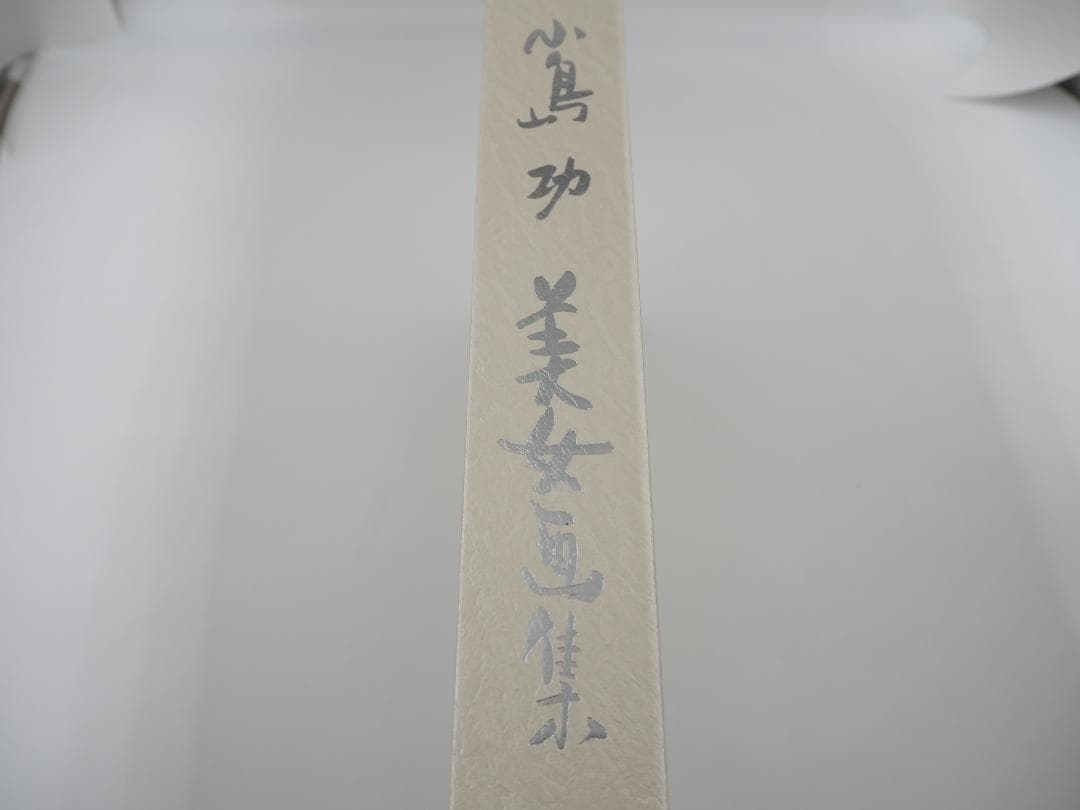 小島功 美女画集